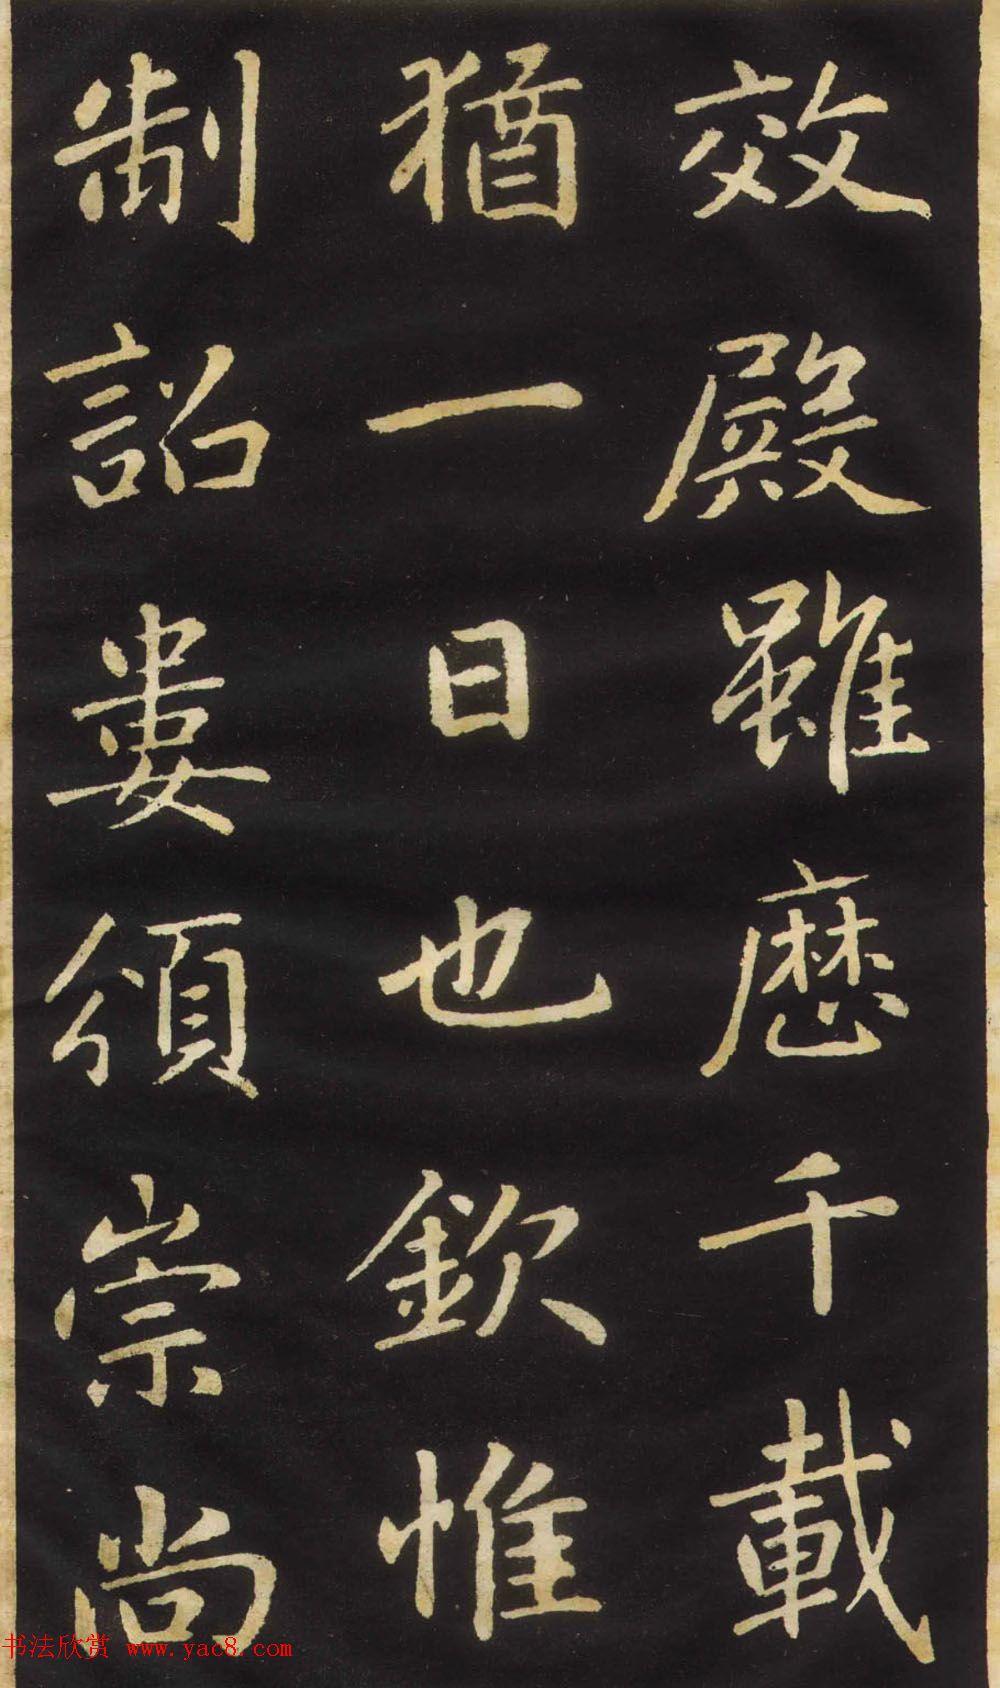 效殿雖歷千載
猶一日也欽惟
制詔婁頒崇尚
书法欣赏 www.yac8.com